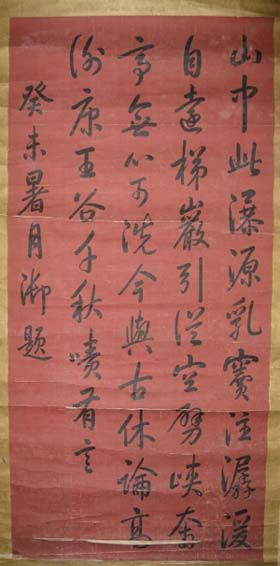 山中此瀑源乳竇注潺湲
自遠梯巖引從空劈峽奔
無心可洗今與古休論
謝康王谷千秋嘖有言
癸未暑月御題